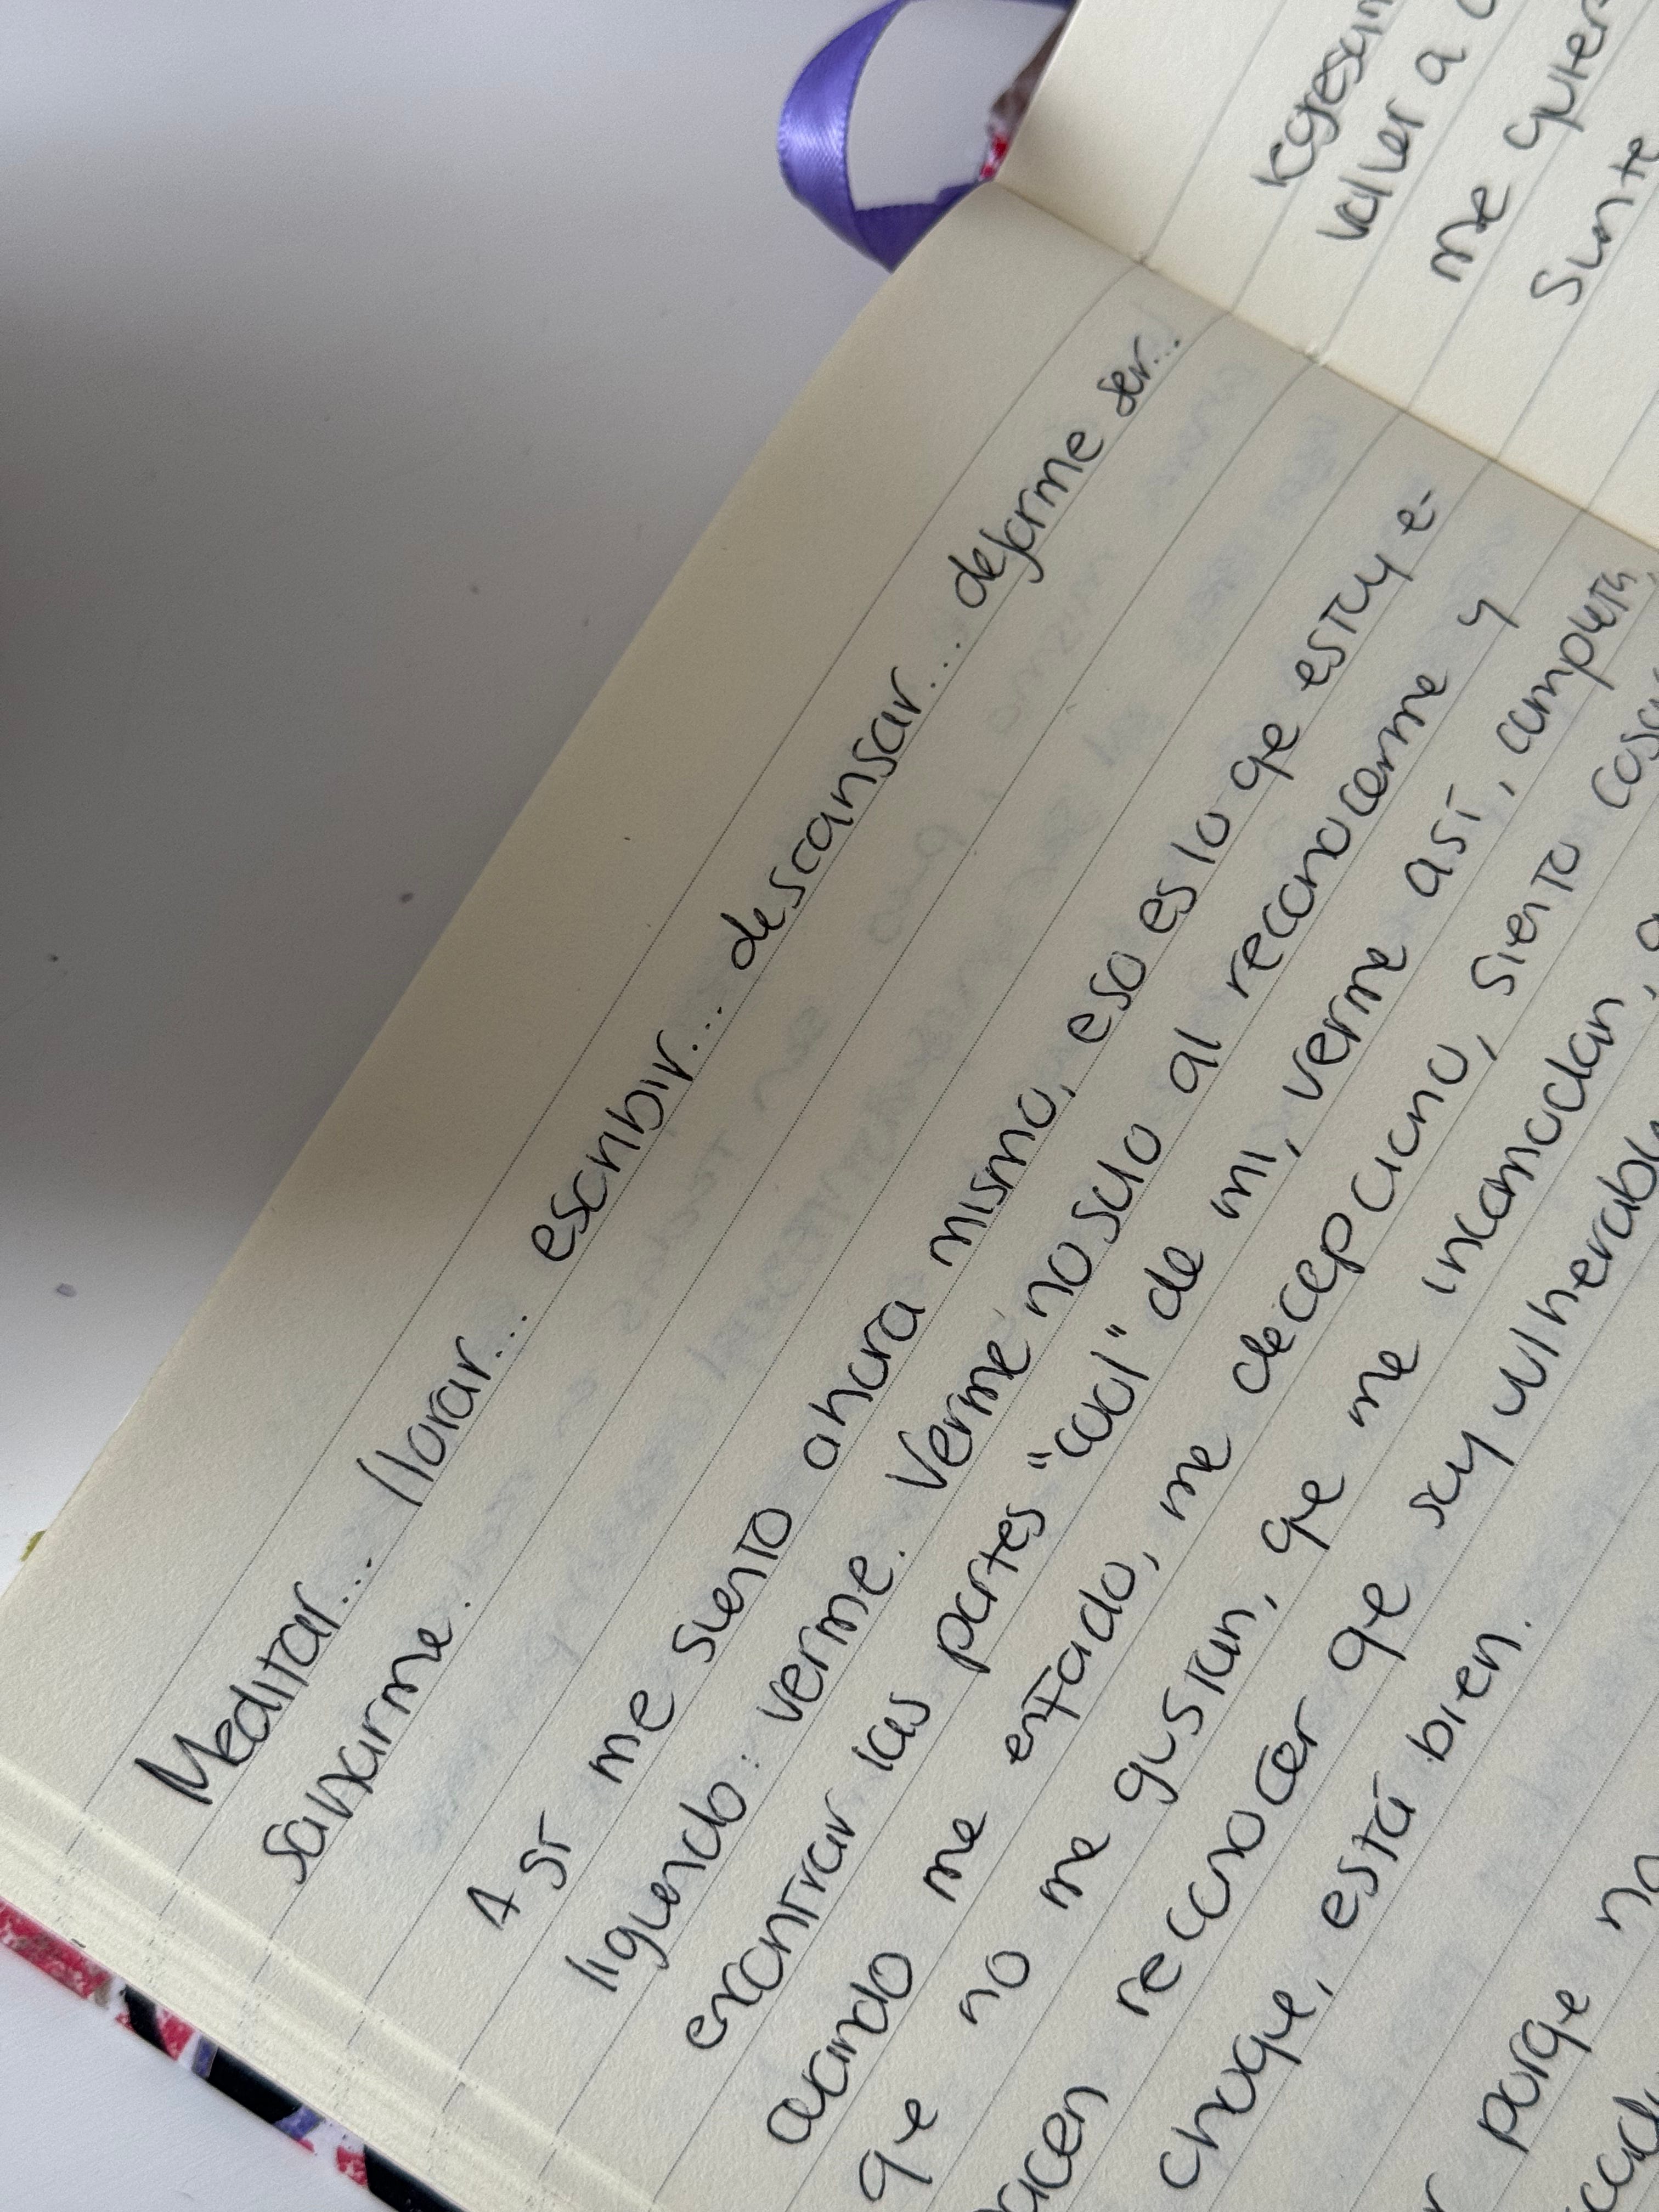 Meditar... llorar... escribir... descansar... dejarme ser...
sanarme.
Así me siento ahora mismo, eso es lo qe estoy e-
ligiendo: verme. Verme no solo al reconocerme y
encontrar las partes "cool" de mi, verme así, completa,
cuando me enfado, me decepciono, siento cosas
qe no me gustan, qe me incomodan,
hacen reconocer qe soy vulnerable
choque, está bien.
porqe no
me quier
volver a